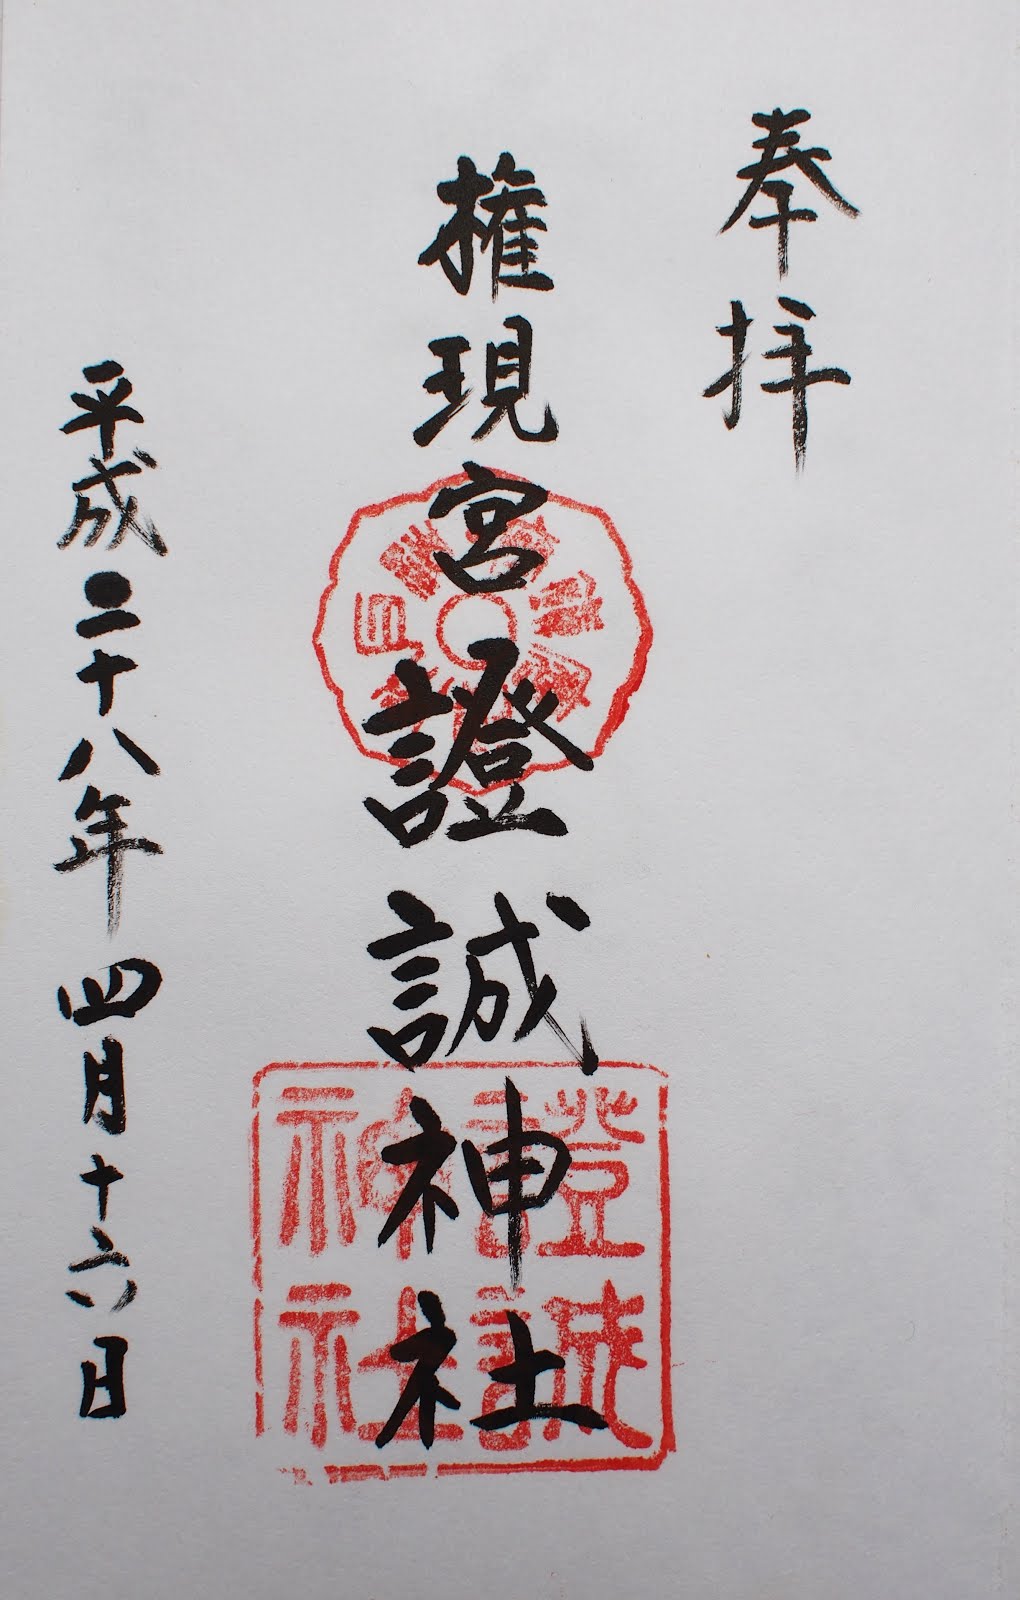 奉拝
権現宮證誠神社
平成二十八年四月十六日
證誠
神社